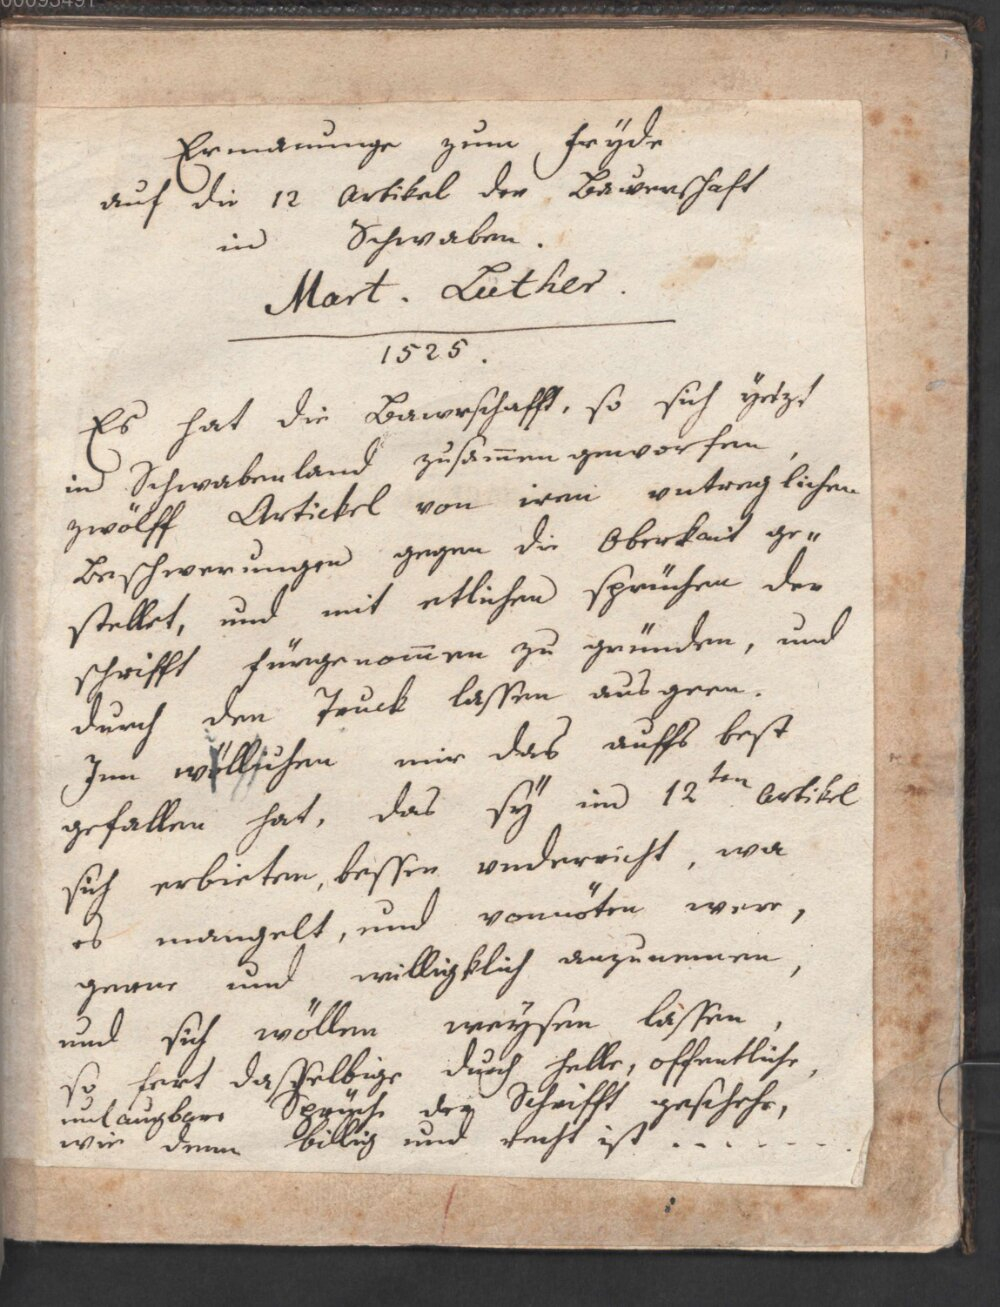 00093491
Ermanunge zum fryde
auf die 12 Artikel der Bawerschaft
in Schwaben.
Mart. Luther.
1525.
Es hat die Bawrschafft, so sich ÿetzt
in Schwabenland zusam̄en geworfen,
zwölff Artickel von iren untreglichen
Beschwerungen gegen die Oberkait ge„
stellet, und mit etlichen sprüchen der
schrifft fürgenom̄en zu gründen, und
durch den Truck lassen ausgeen.
Inn wöllichen mir das auffs best
gefallen hat, das sÿ im 12ten Artikel
sich erbieten, bessern underricht, wa
es mangelt, und vonnöten were,
gerne und willigklich anzunemen,
und sich wöllen weÿsen lassen,
so fert dasselbige durch helle, offentliche,
unlaugbare Sprüche der Schrifft geschehe,
wie denn billig und recht ist . . . . . .